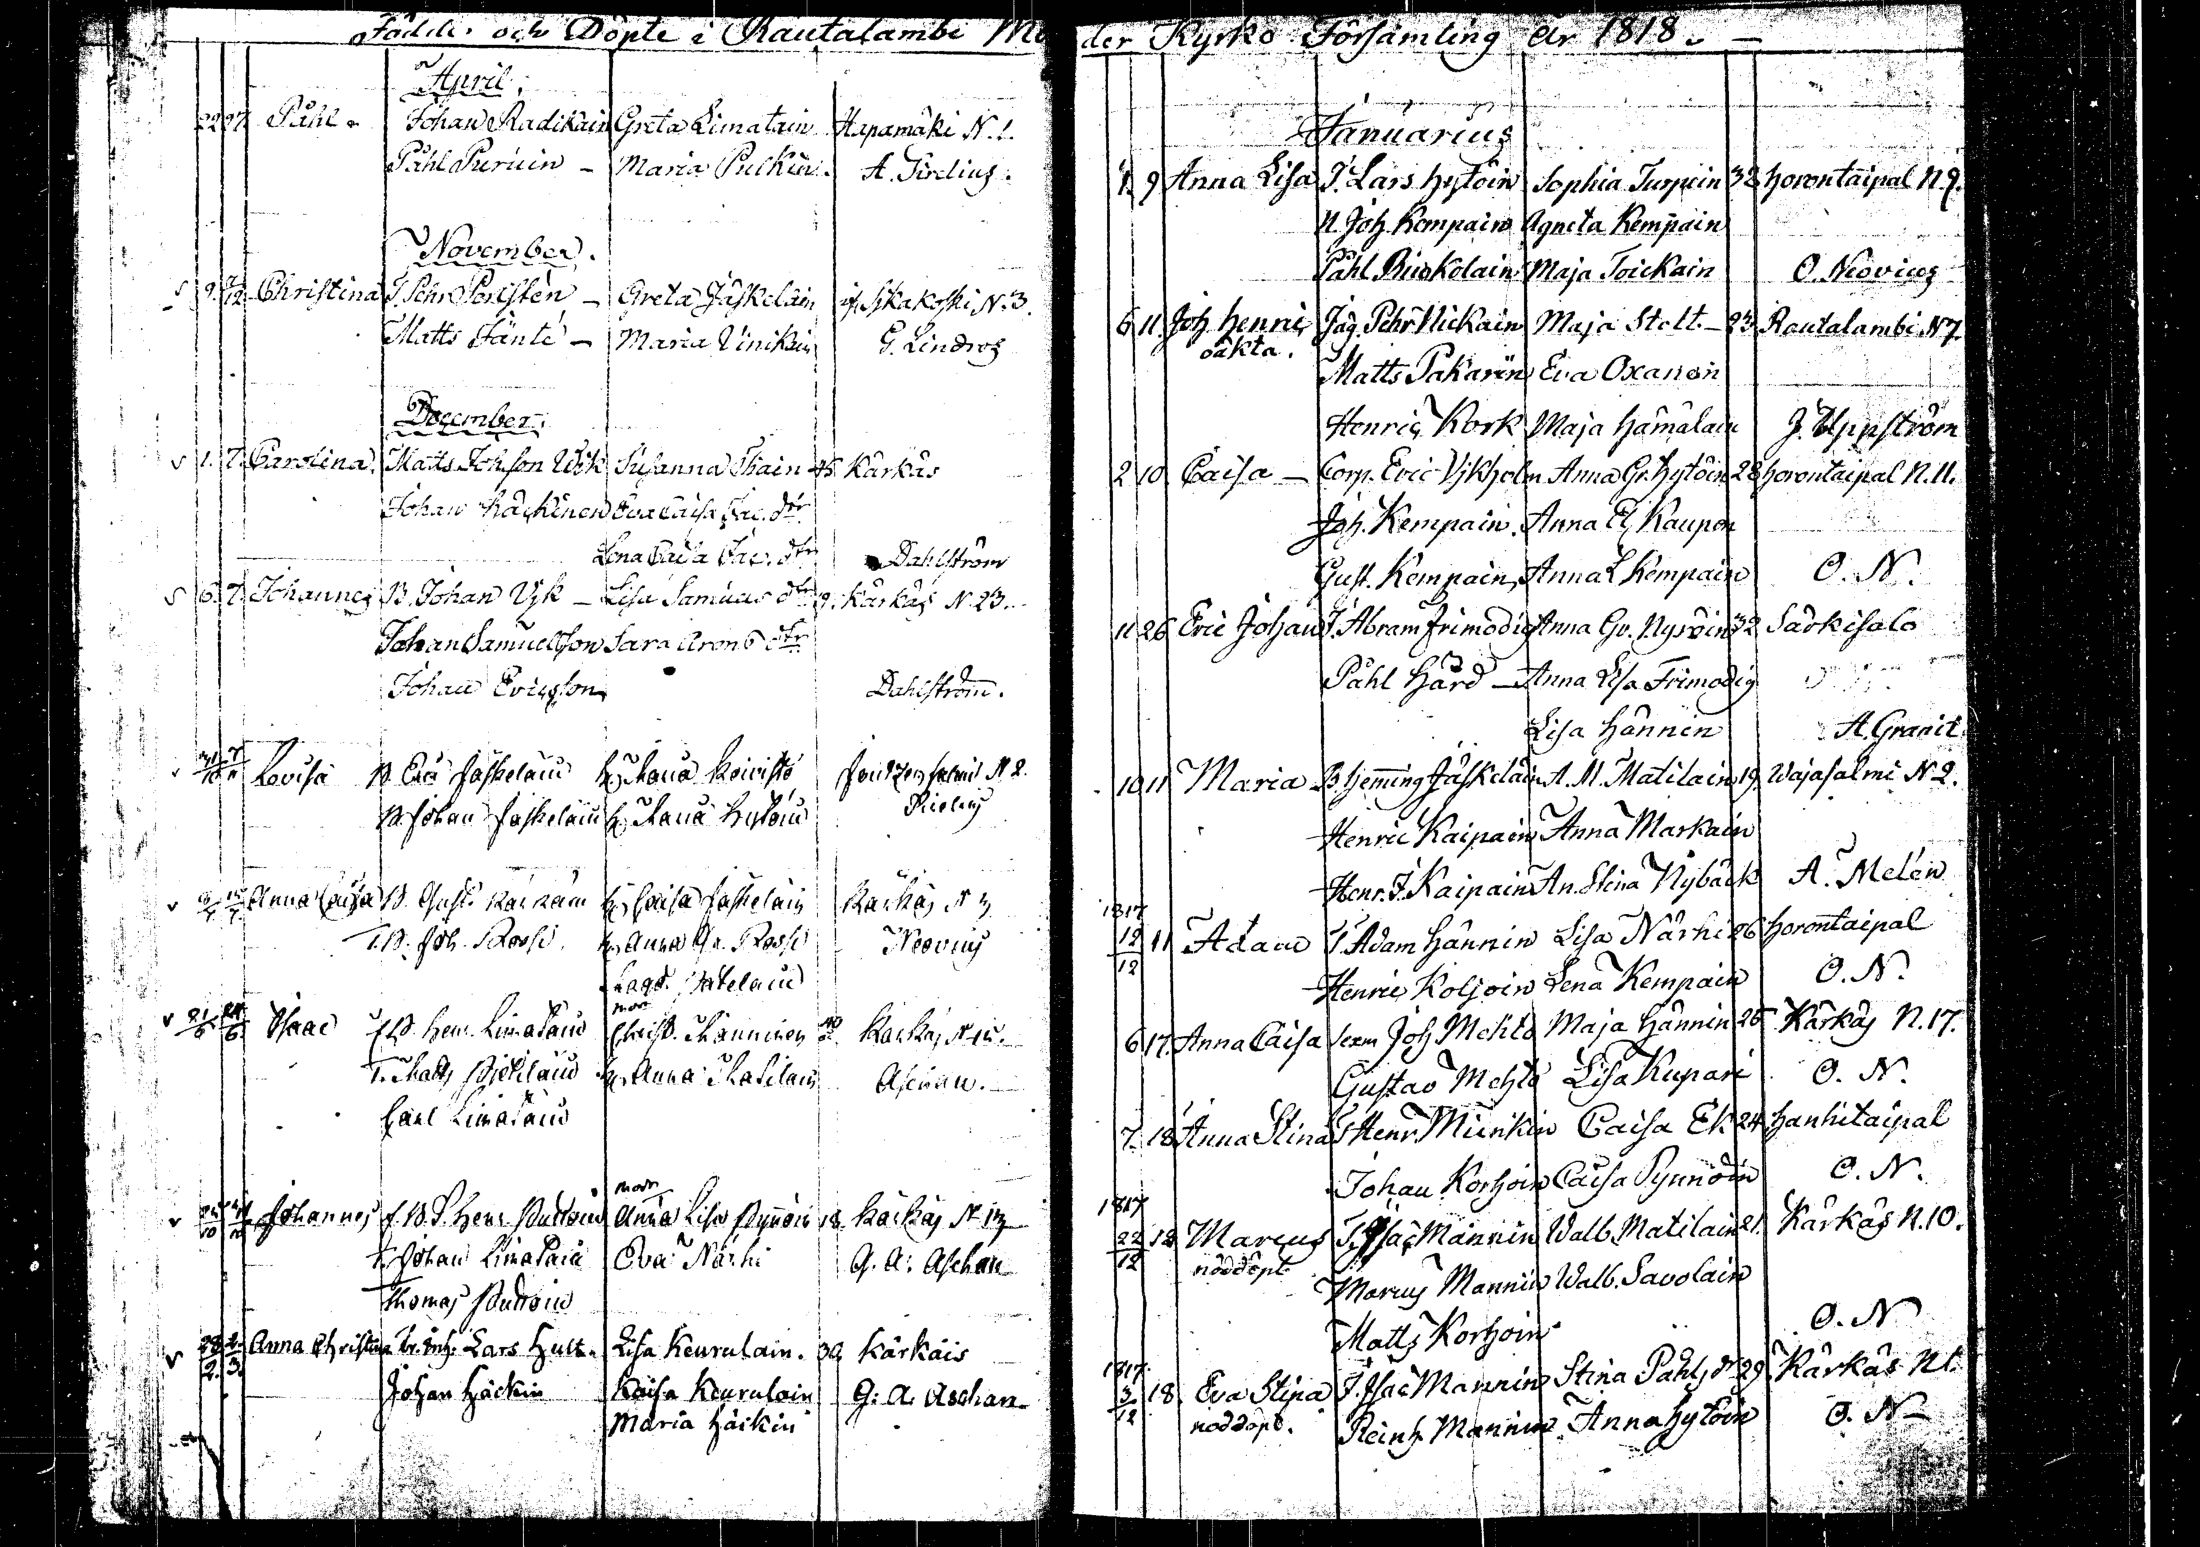 Födde och Döpte i Rautalambi Moder Kyrko Församling År 1818.
April.
22 27 Påhl Johan Radikain Greta Limatain Hapamäki N. 1.
Påhl Puruin Maria Pulkin A. Sirelius.
November.
9. 7/12 Christina T. Pehr Persten Greta Jäskeläin Iskakoski N. 3.
Matts Jänte Maria Vinikain G. Lindros
December.
1. 7. Carolina Matts Johsson Wik Susanna Thain 45 Kärkäs
Johan Häckinen Eva Caisa Jac. dtr
Lena Caisa Jac. dtr Dahlström
6. 7. Johannes B. Johan Vik Lisa Samuels dtr 9. Kärkäs N. 23.
Johan Samuelsson Sara Arons dtr
Johan Ericsson Dahlström.
Lovisa B. Eric Jäskeläin H. Maria Koivisto N 2.
B. Johan Jäskeläin H. Maria Hytöin
Anna Caisa B. Gust. H. Caisa Jäskeläin Kärkäs N 3
T.B. Joh. Rossi H. Anna Gr. Rossi Neovius
21/6 24/6 Isaac Hen. Limatain mor Christ. Manninen 40 Kärkäs N 15.
T. Matts Pietiläin H. Anna Matilain Aschan.
Carl Limatain
Johannes Hen. Puttoin mor Anna Lisa Pynnöin 18 Kärkäs N 13
T. Johan Limatain Eva Närhi G. A. Aschan
Thomas Puttoin
28/2. 1/3. Anna Christina Lars Hult. Lisa Keurulain. 32 Kärkäis
Johan Häckin Kaisa Keurulain G. A. Aschan
Maria Häckin
Januarius
1. 9 Anna Lisa T. Lars Hytöin Sophia Turpein 32 Horontaipal N 9.
N. Joh. Kempain Agneta Kempain
Påhl Puukolain Maja Toickain O. Neovius
6 11 Joh Henric Jäg. Pehr Nickain Maja Stolt 23. Rautalambi N 7.
oäkta. Matts Pakarin Eva Oxanen
Henric Kork Maja Hämäläin J. Uppström
2 10 Caisa Corp. Eric Vikholm Anna Gr. Hytöin 28 Horontaipal N. 11.
Joh. Kempain. Anna El. Kaupon
Gust. Kempain, Anna L Kempain O. N.
11 26 Eric Johan T. Abram Frimodig Anna Gr. Nyroin 32 Särkisalo
Påhl Hård Anna Lisa Frimodig
Lisa Hännin A. Granit
10 11 Maria B. Hemming Jäskeläin A. M. Matilain 19. Wajasalmi N 2.
Henric Kaipain Anna Markain
Henr. J. Kaipain An. Stina Nybäck A. Melén
1817
19/12 11 Adam T. Adam Hännin Lisa Närhi 26 Horontaipal
Henric Koljoin Lena Kempain O. N.
6 17. Anna Caisa Joh Mehto Maja Hännin 25 Kärkäs N. 17.
Gustav Mehto Lisa Kupari O. N.
7. 18 Anna Stina T. Henr. Minkin Caisa Ek 24 Hanhitaipal
Johan Korhoin Caisa Pynnöin O. N.
1817
22/12 18 Marcus T. Isac Mannin Walb. Matilain 21. Kärkäs N. 10.
nöddöpt Marcus Mannin Walb. Savolain
Matts Korhoin O. N
1817
3/12 18. Eva Stina T. Isac Mannin Stina Påhls dr 29. Kärkäs N 1.
nöddöpt. Reinh. Mannin Anna Hytöin O. N